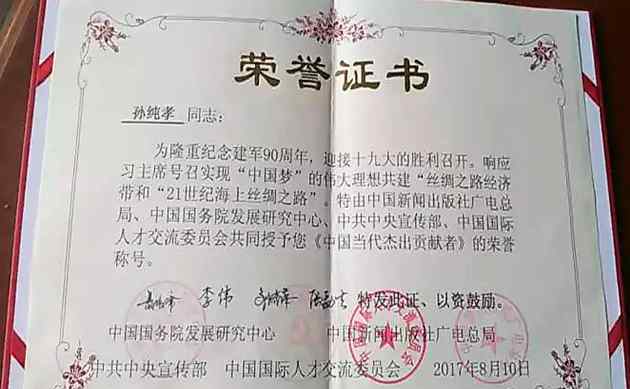 荣誉证书
孙纯孝 同志：
为隆重纪念建军90周年，迎接十九大的胜利召开。响应
习主席号召实现“中国梦”的伟大理想共建“丝绸之路经济
带和“21世纪海上丝绸之路”。特由中国新闻出版社广电总
局、中国国务院发展研究中心、中共中央宣传部、中国国际
人才交流委员会共同授予您《中国当代杰出贡献者》的荣誉
称号。
李伟 特发此证、以资鼓励。
中国国务院发展研究中心 中国新闻出版社广电总局
中共中央宣传部 中国国际人才交流委员会 2017年8月10日